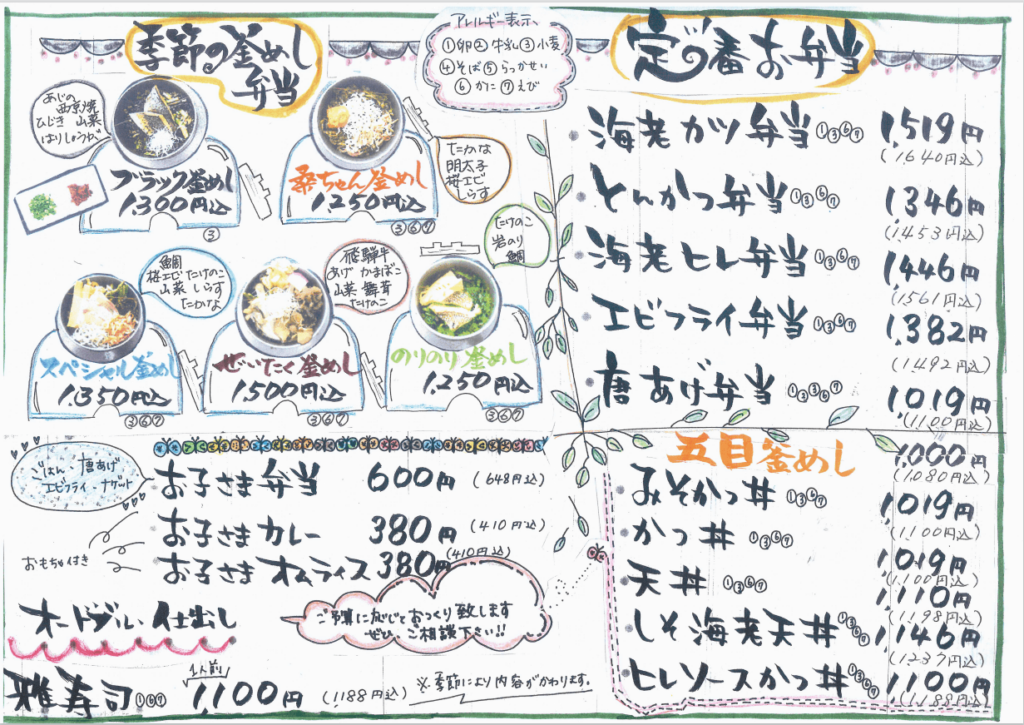 季節の釜めし
弁当
アレルギー表示、
①卵②牛乳③小麦
④そば⑤らっかせい
⑥かに⑦えび
あじの
西京焼
ひじき 山菜
はりしょうが
ブラック釜めし
1,300円込
③
桑ちゃん釜めし
1,250円込
③⑥⑦
たかな
明太子
桜エビ
しらす
鯛
桜エビ たけのこ
山菜 しらす
たかな
スペシャル釜めし
1,350円込
③⑥⑦
飛騨牛
あげ かまぼこ
山菜 舞茸
たけのこ
ぜいたく釜めし
1,500円込
③⑥⑦
たけのこ
岩のり
鯛
のりのり釜めし
1,250円込
③⑥⑦
定番お弁当
海老カツ弁当①③⑥⑦ 1,519円
(1,640円込)
とんかつ弁当①③⑥⑦ 1,346円
(1,453円込)
海老ヒレ弁当①③⑥⑦ 1,446円
(1,561円込)
エビフライ弁当①③⑥⑦ 1,382円
(1,492円込)
唐あげ弁当①③⑥⑦ 1,019円
(1,100円込)
ごはん・唐あげ
エビフライ・ナゲット
お子さま弁当 600円 (648円込)
お子さまカレー 380円 (410円込)
お子さまオムライス 380円 (410円込)
おもちゃ付き
オードブル・仕出し
ご予算に応じておつくり致します
ぜひ、ご相談下さい!!
雅寿司①⑥⑦ 1人前 1,100円 (1,188円込)
※季節により内容がかわります。
五目釜めし 1,000円
(1,080円込)
みそかつ丼①③⑥⑦ 1,019円
(1,100円込)
かつ丼①③⑥⑦ 1,019円
(1,100円込)
天丼①③⑥⑦ 1,110円
(1,198円込)
しそ海老天丼①③⑥⑦ 1,146円
(1,237円込)
ヒレソースかつ丼①③⑥⑦ 1,100円
(1,188円込)